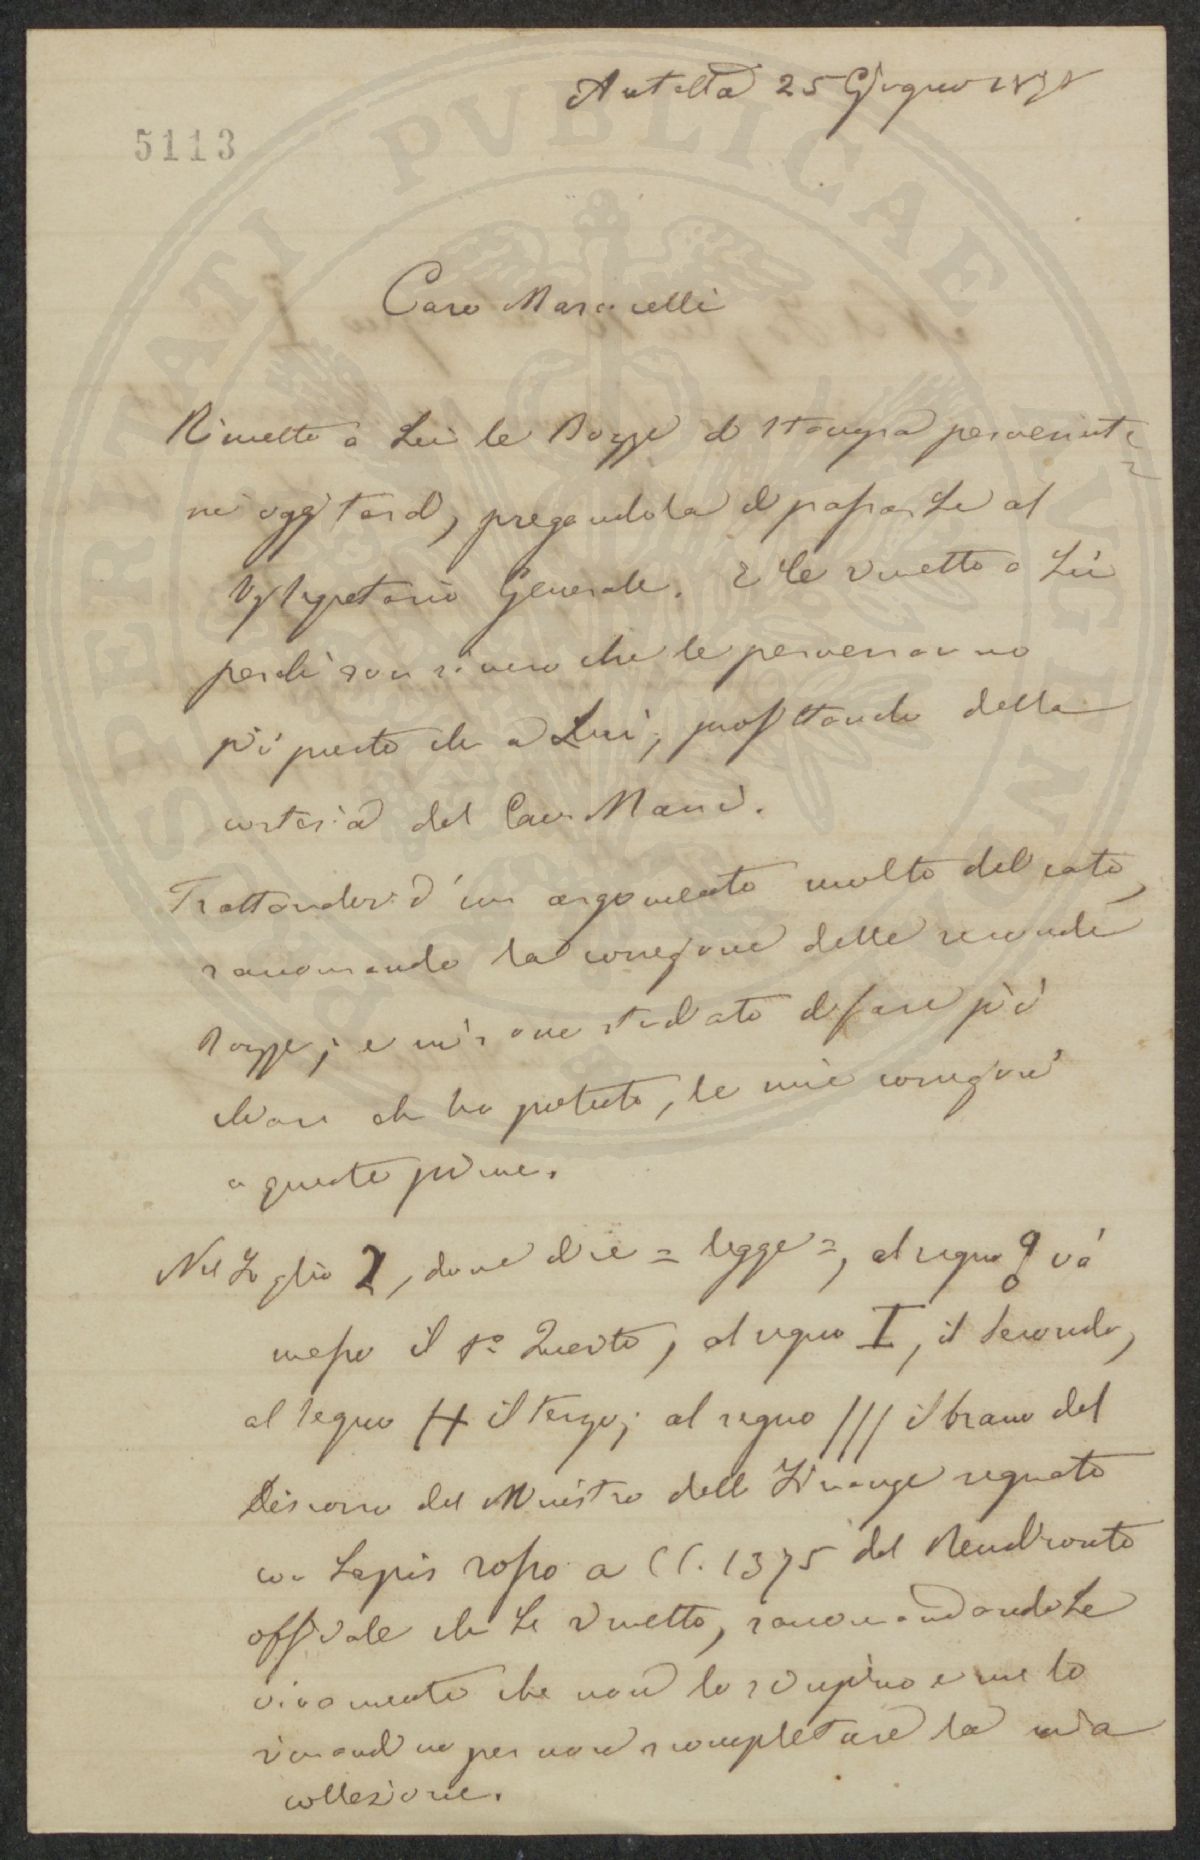 Antella 25 Giugno 1871
5113
Caro Marucelli
Rimetto a Lei le Bozze di Stampa pervenute
mi oggi tardi, pregandola di passarle al
Segretario Generale. E le rimetto a Lei
perchè son sicuro che le perverranno
più presto che a Lui, profittando della
cortesia del Cav. Manci.
Trattandosi d'un argomento molto delicato,
raccomando la correzione delle seconde
Bozze; e mi sono studiato di fare più
chiare che ho potuto, le mie correzioni
a queste prime.
Nel Foglio 2, dove dice = legge =, al segno và
messo il 1º Questo, al segno I, il secondo,
al segno H il terzo; al segno /// il brano del
Discorso del Ministro delle Finanze segnato
con Lapis rosso a C. 1375 del Rendiconto
officiale che Le rimetto, raccomandandole
vivamente che non lo sciupino e me lo
rimandino per non scompletare la mia
collezione.